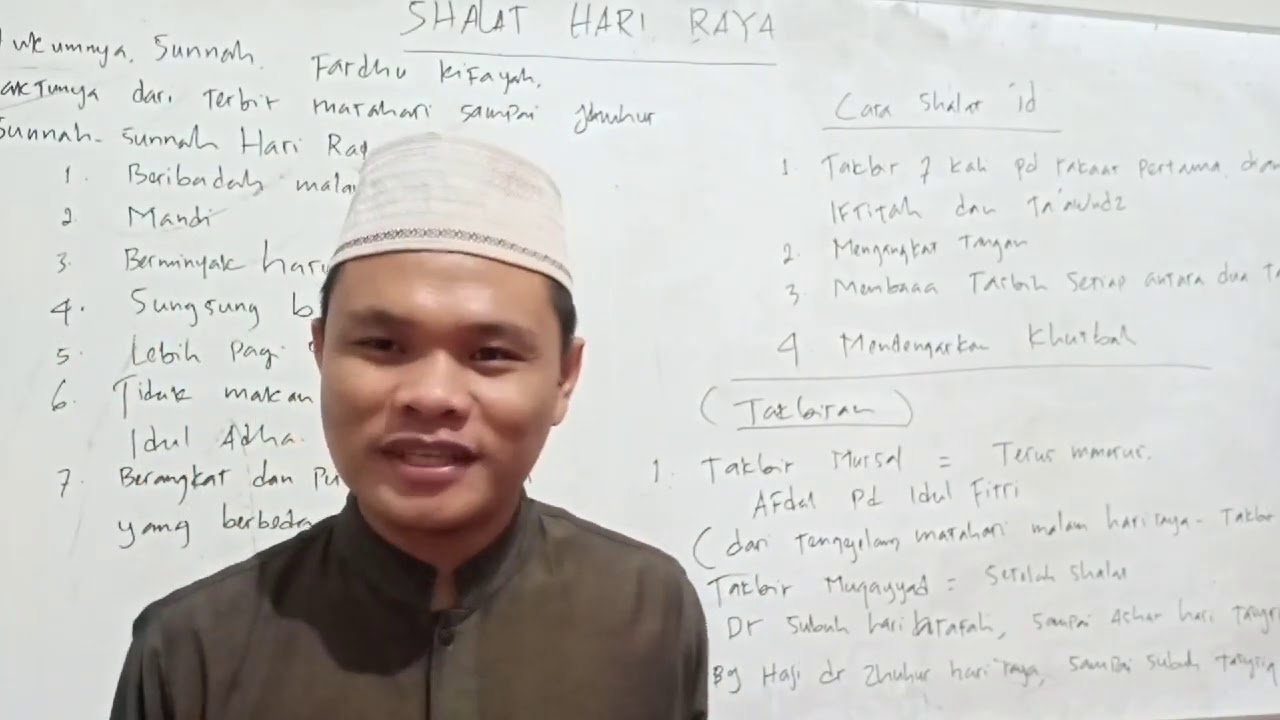 SHALAT HARI RAYA
ukumnya. Sunnah. Fardhu kifayah.
akTunya dari Terbit matahari sampai
Sunnah-Sunnah Hari Ra
1. Beribadah mala
2. Mandi
3. Berminyak haru
4. Sungsung b
5. Lebih Pagi
6. Tidak makan
Idul Adha.
7. Berangkat dan Pu
yang berbeda
Cara Shalat id
1. Takbir 7 kali pd rakaat pertama, dian
IFTITah dan Ta'awudz
2. Mengangkat Tangan
3. Membaca Tasbih Setiap antara dua Ta
4 Mendengarkan Khutbah
(Takbiran)
1. Takbir Mursal = Terus menerus.
AFdal Pd Idul Fitri
(dari Tenggelam matahari malam hari raya - Takbir
Takbir Muqayyad = Setelah Shalat
Dr Subuh hari arafah, Sampai Ashar hari Tasyri
Bg Haji dr Zhuhur hari raya, Sampai Subuh Tasyriq